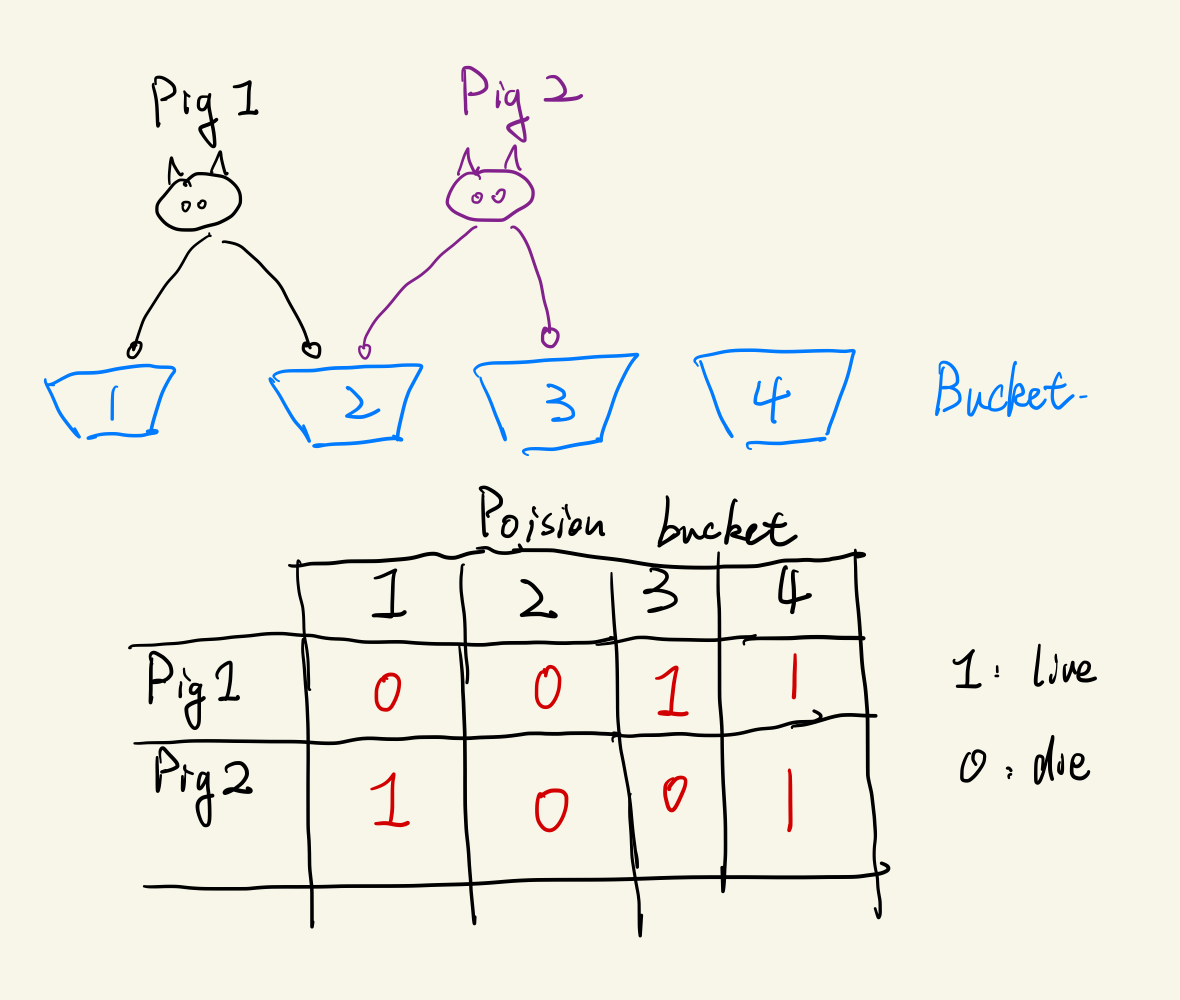 Pig 1 Pig 2
1 2 3 4 Bucket.
Poision bucket
1 2 3 4
Pig 1 0 0 1 1 1: live
Pig 2 1 0 0 1 0: die